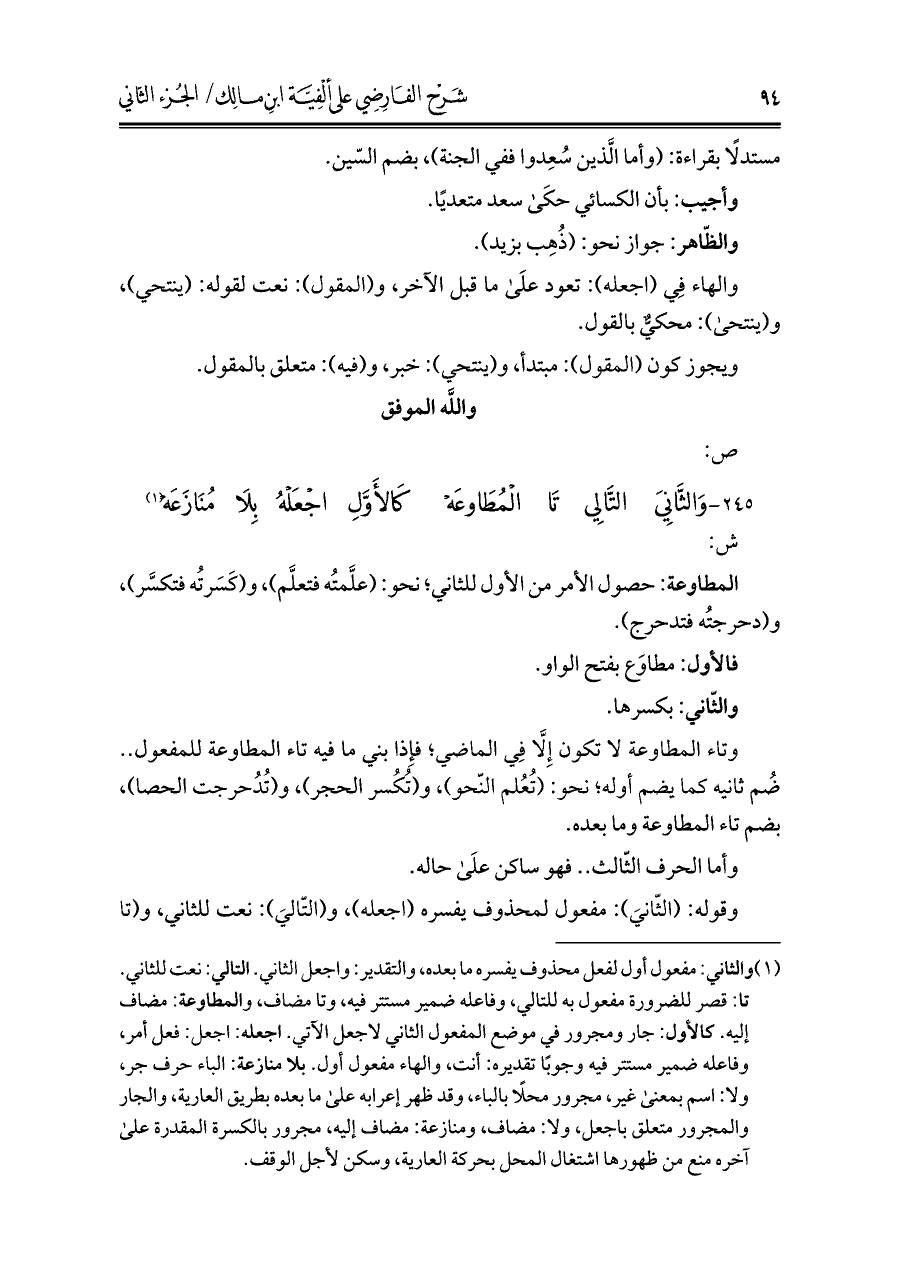 ٩٤ شرح الفارضي على ألفية ابن مالك/ الجزء الثاني
مستدلًا بقراءة: (وأما الَّذين سُعِدوا ففي الجنة)، بضم السّين.
وأجيب: بأن الكسائي حكَىٰ سعد متعديًا.
والظّاهر: جواز نحو: (ذُهِب بزيد).
والهاء فِي (اجعله): تعود علَىٰ ما قبل الآخر، و(المقول): نعت لقوله: (ينتحي)،
و(ينتحىٰ): محكيٌّ بالقول.
ويجوز كون (المقول): مبتدأ، و(ينتحي): خبر، و(فيه): متعلق بالمقول.
واللَّه الموفق
ص:
٢٤٥-وَالثَّانِيَ التَّالِي تَا الْمُطَاوعَهْ كَالأَوَّلِ اجْعَلْهُ بِلَا مُنَازَعَهْ(١)
ش:
المطاوعة: حصول الأمر من الأول للثاني؛ نحو: (علَّمتُه فتعلَّم)، و(كَسَرتُه فتكسَّر)،
و(دحرجتُه فتدحرج).
فالأول: مطاوَع بفتح الواو.
والثّاني: بكسرها.
وتاء المطاوعة لا تكون إِلَّا فِي الماضي؛ فإِذا بني ما فيه تاء المطاوعة للمفعول..
ضُم ثانيه كما يضم أوله؛ نحو: (تُعُلم النّحو)، و(تُكُسر الحجر)، و(تُدُحرجت الحصا)،
بضم تاء المطاوعة وما بعده.
وأما الحرف الثّالث.. فهو ساكن علَىٰ حاله.
وقوله: (الثّانيَ): مفعول لمحذوف يفسره (اجعله)، و(التّاليَ): نعت للثاني، و(تا
(١) والثاني: مفعول أول لفعل محذوف يفسره ما بعده، والتقدير: واجعل الثاني. التالي: نعت للثاني.
تا: قصر للضرورة مفعول به للتالي، وفاعله ضمير مستتر فيه، وتا مضاف، والمطاوعة: مضاف
إليه. كالأول: جار ومجرور في موضع المفعول الثاني لاجعل الآتي. اجعله: اجعل: فعل أمر،
وفاعله ضمير مستتر فيه وجوبًا تقديره: أنت، والهاء مفعول أول. بلا منازعة: الباء حرف جر،
ولا: اسم بمعنىٰ غير، مجرور محلًا بالباء، وقد ظهر إعرابه علىٰ ما بعده بطريق العارية، والجار
والمجرور متعلق باجعل، ولا: مضاف، ومنازعة: مضاف إليه، مجرور بالكسرة المقدرة علىٰ
آخره منع من ظهورها اشتغال المحل بحركة العارية، وسكن لأجل الوقف.